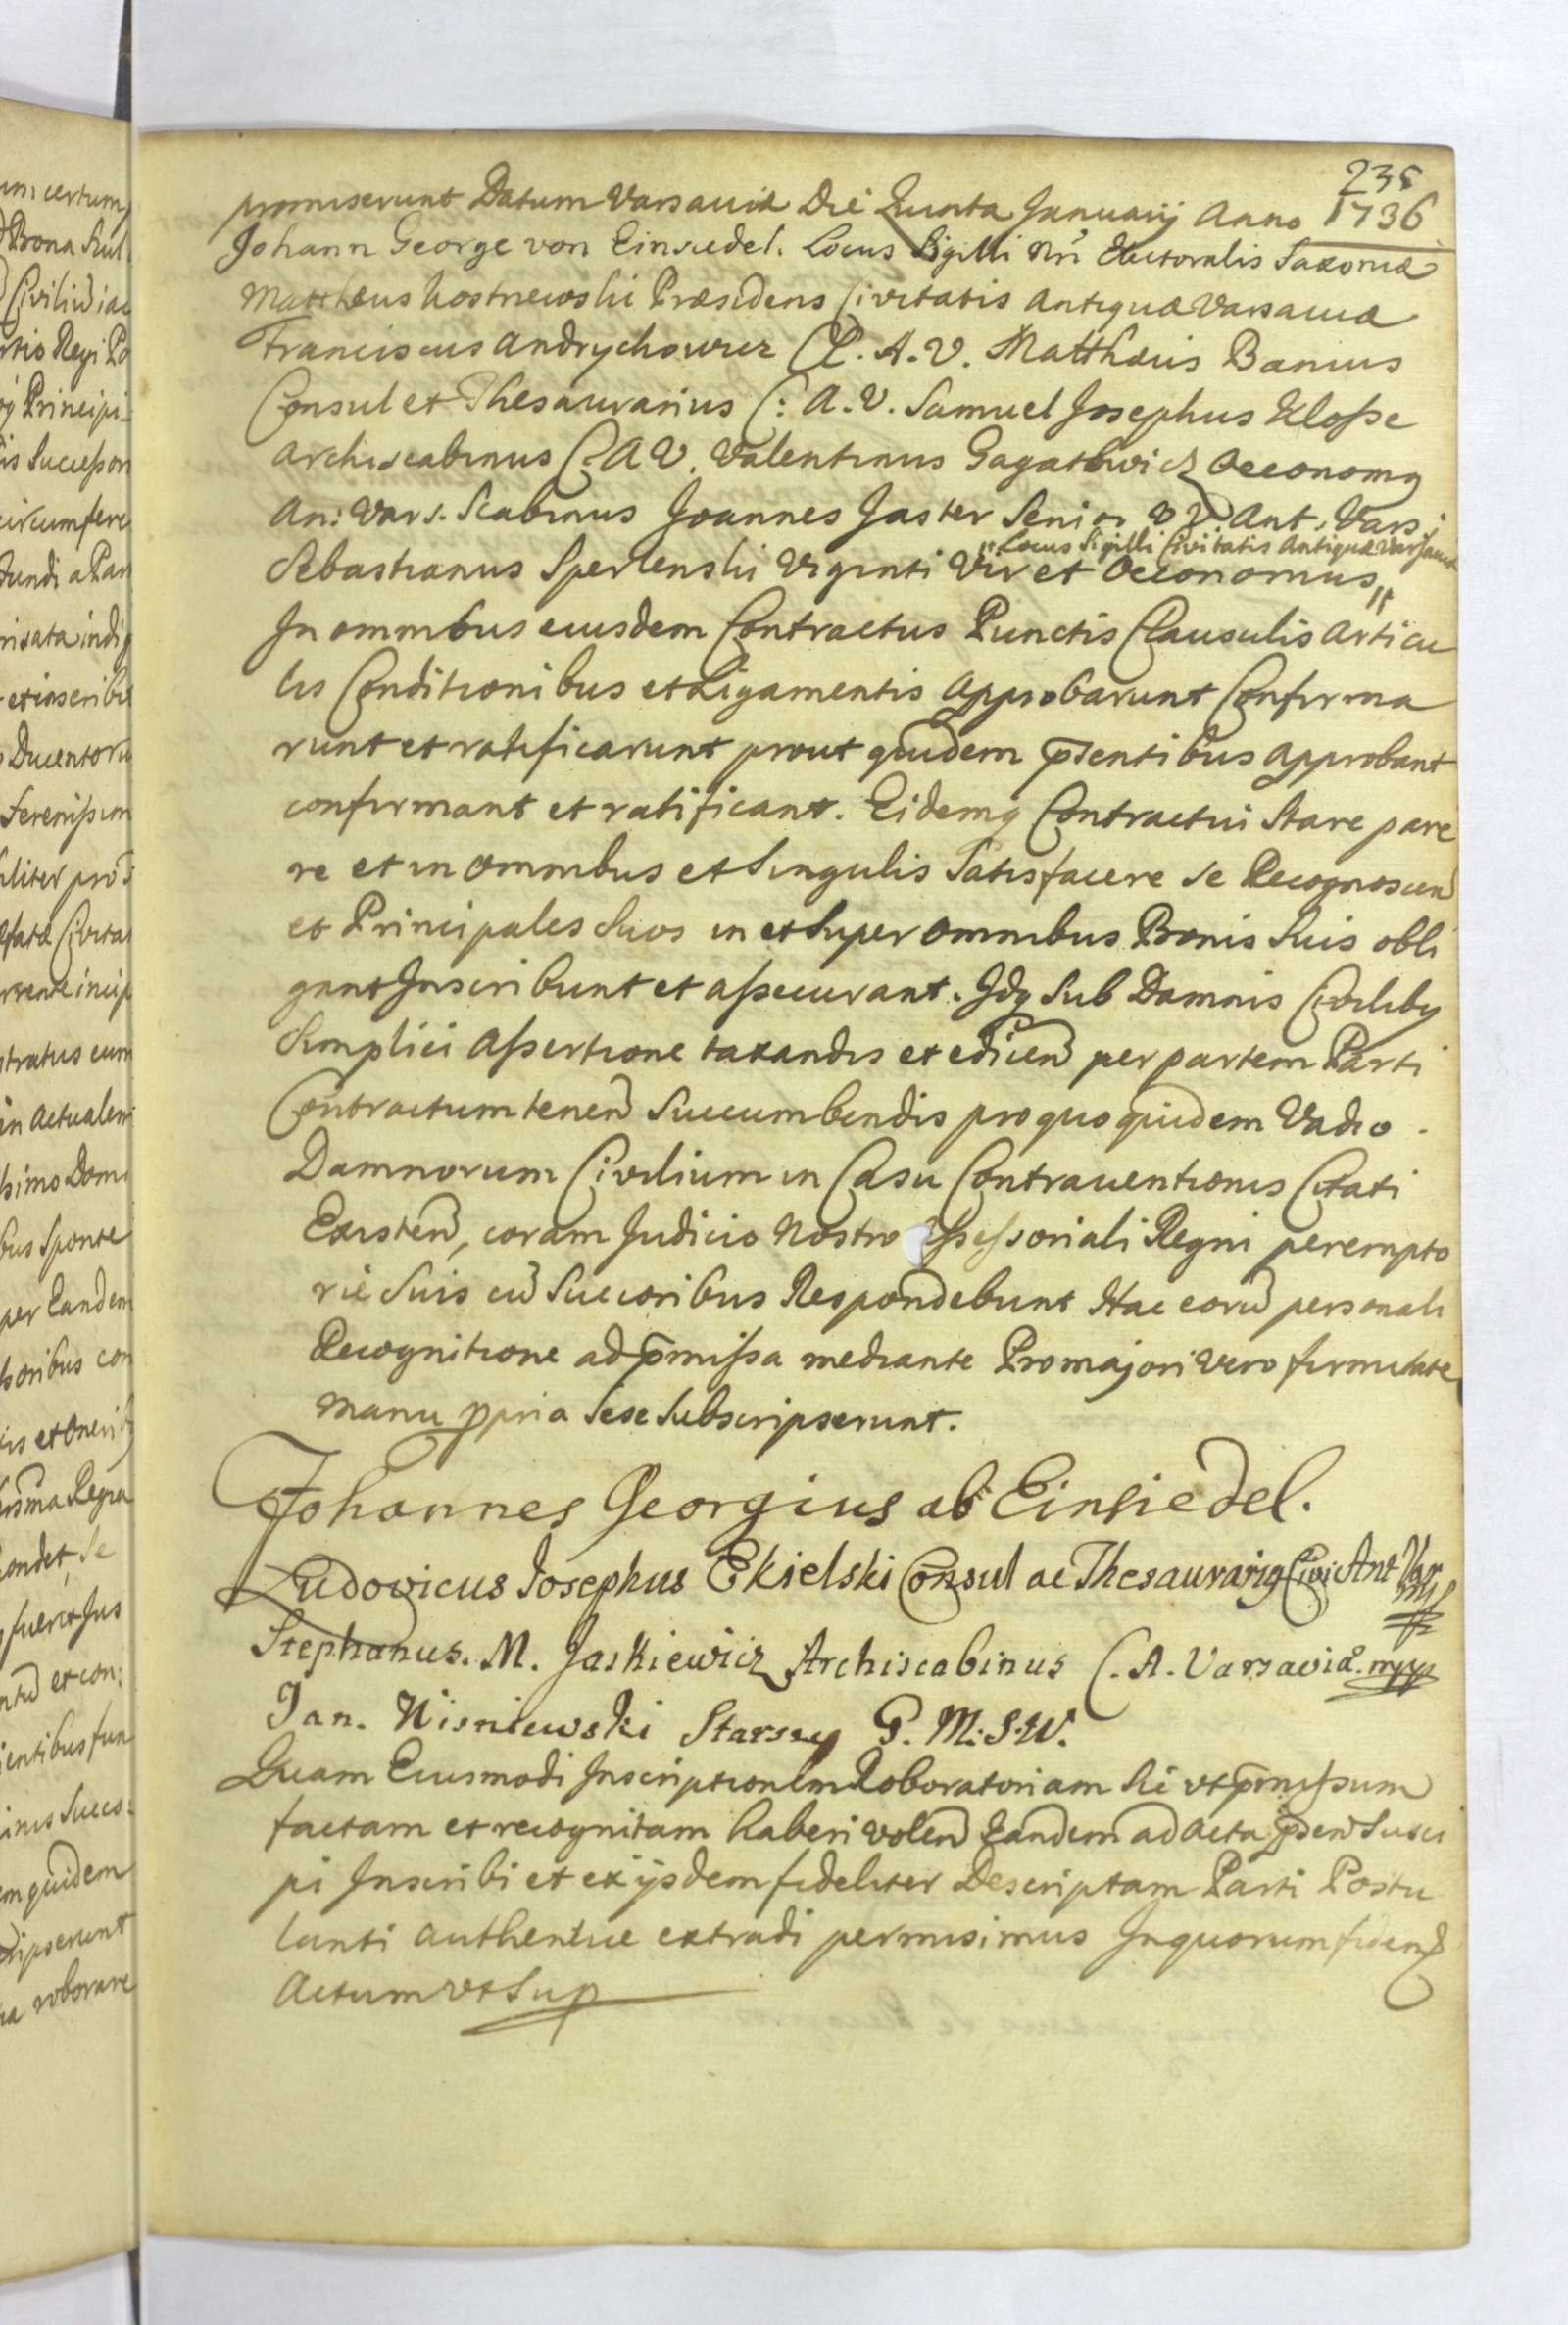 235
promiserunt Datum Varsauiæ Die Quinta Januarij Anno 1736
Johann George von Einsiedel. Locus Sigilli Nri Electoralis Saxoniæ
Mattheus Kostrzewski Præsidens Civitatis Antiquæ Varsauiæ
Franciscus Andrychowicz C. A. V. Matthæus Banius
Consul et Thesaurarius C: A. V. Samuel Josephus Klosse
Archiscabinus C A V. Valentinus Gagatkwicz Oeconomq
An: Vars. Scabinus Joannes Jaster Senior V V. Ant. Vars:
"Locus Sigilli Civitatis Antiquæ Varsauiæ
Sebastianus Sperlenski Viginti Vir et Oeconomus"
In omnibus eiusdem Contractus Punctis Clausulis Articu
lis Conditionibus et Ligamentis Approbarunt Confirma
runt et ratificarunt prout quidem pñsentibus approbant
confirmant et ratificant. Eidemq Contractui Stare pare
re et in omnibus et Singulis Satisfacere Se Recognoscen
et Principales Suos in et Super omnibus Bonis Suis obli
gant Inscribunt et assecurant. Idq Sub Damnis Civilibq
Simplici Assertione taxandis et edicen per partem Parti
Contractum tenen Succumbendis pro quo quidem Vadio
Damnorum Civilium in Casu Contrauentionis Citati
Existen, coram Judicio Nostro Assessoriali Regni perempto
rie Suis cu Succoribus Respondebunt Hac eoru personali
Recognitione ad pmissa mediante Pro majori vero firmitate
manu ppria Sese Subscripserunt.
Johannes Georgius ab Einsiedel.
Ludovicus Josephus Ekielski Consul ac Thesaurariq Civi: Ant Var mp
Stephanus. M. Jaskiewicz Archiscabinus C. A. Varsaviæ. mpp
Jan. Wisniewski Starszy G. M: S: W.
Quam Eiusmodi Inscriptionem Roboratoriam Sic vt pmissum
factam et recognitam haberi volen Eandem ad Acta pñsen Susci
pi Inscribi et ex ijsdem fideliter Descriptam Parti Postu
lanti authentice extradi permisimus In quorum fidem
Actum vt Sup